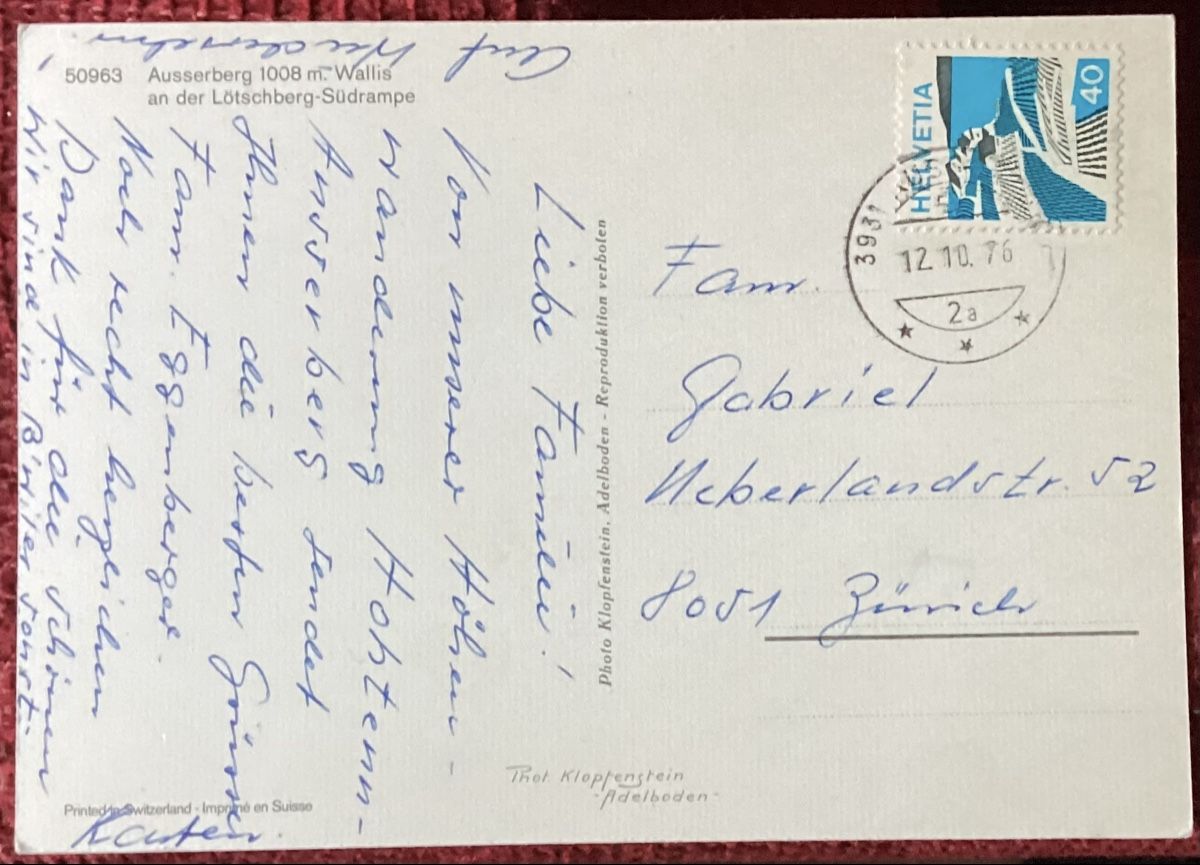 50963 Ausserberg 1008 m. Wallis
an der Lötschberg-Südrampe
Liebe Familie!
Von unserer Höhen-
wanderung Hohtenn-
Ausserberg sendet
Ihnen die besten Grüsse
Fam. Eggenberger.
Noch recht herzlichen
Dank für die schönen
Karten.
Wir sind in
Auf
Wiedersehn.
Printed in Switzerland - Imprimé en Suisse
Photo Klopfenstein, Adelboden - Reproduktion verboten
HELVETIA
40
3931
12.10.76
2a
Fam.
Gabriel
Ueberlandstr. 52
8051 Zürich
Phot. Klopfenstein
- Adelboden -